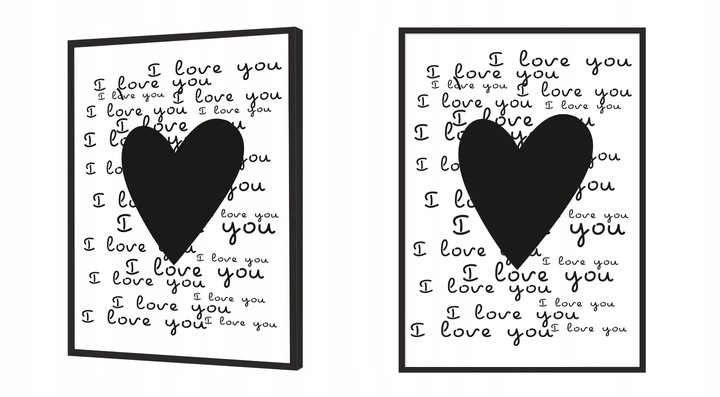 I love you
I love you
I love you
I love you
I love you
I love you
I love
I
I you
I you
love you
I you
I love
I love you
I love you
I love you
I love you
I love you
I love you
I love you
I love you
I love you
I love you
I love you
I love you
I love you
I love
I
I you
I you
love you
I you
I love
I love you
I love you
I love you
I love you
I love you
I love you
I love you